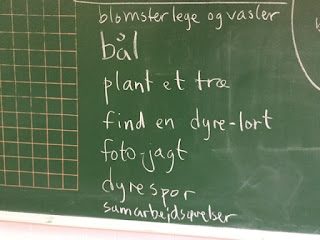 blomsterlege og vasler
bål
plant et træ
find en dyre-lort
foto-jagt
dyrespor
samarbejdsøvelser